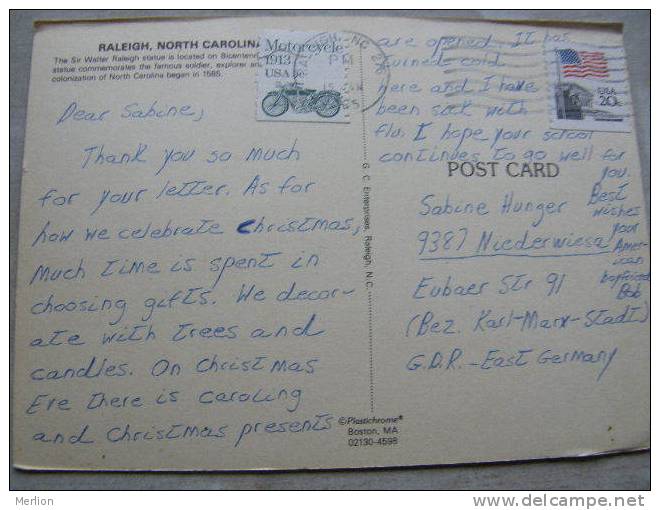 RALEIGH, NORTH CAROLINA
The Sir Walter Raleigh statue is located on Bicentenn
statue commemorates the famous soldier, explorer an
colonization of North Carolina began in 1585.
Motorcycle
1913
USA
Dear Sabine,
Thank you so much
for your letter. As for
how we celebrate Christmas,
much time is spent in
choosing gifts. We decor-
ate with trees and
candles. On Christmas
Eve there is caroling
and Christmas presents
are opened. It has
turned cold
here and I have
been sick with
flu. I hope your school
continues to go well for
you.
Best
wishes
your
Amer-
ican
boyfriend
Bob
USA
20c
NC
PM
POST CARD
Sabine Hunger
9387 Niederwiesa
Eubaer Str 91
(Bez. Karl-Marx-Stadt)
G.D.R. - East Germany
G. C. Enterprises, Raleigh, N.C.
©Plastichrome®
Boston, MA
02130-4598
Merlion
www.delcampe.net